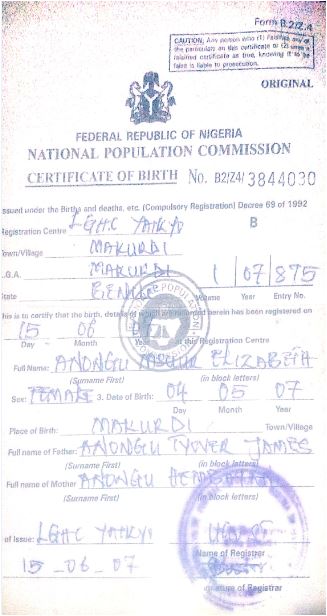 Form B.2/Z.4
CAUTION: Any person who (1) falsifies any of
the particulars on this certificate or (2) uses a
falsified certificate as true, knowing it to be
false is liable to prosecution.
ORIGINAL
FEDERAL REPUBLIC OF NIGERIA
NATIONAL POPULATION COMMISSION
CERTIFICATE OF BIRTH No. B2/Z4/ 3844030
ssued under the Births and deaths, etc. (Compulsory Registration) Decree 69 of 1992
Registration Centre LGHC B
Town/Village MAKURDI
L.G.A. MAKURDI 1 07 875
State BENUE Volume Year Entry No.
This is to certify that the birth, details of which are recorded herein has been registered on
15 06 at this Registration Centre
Day Month Year
Full Name: ANONGU ELIZABETH
(Surname First) (in block letters)
Sex: FEMALE 3. Date of Birth: 04 05 07
Day Month Year
Place of Birth: MAKURDI Town/Village
Full name of Father: ANONGU TYOVER JAMES
(Surname First) (in block letters)
Full name of Mother ANONGU
(Surname First) (in block letters)
of Issue: LGHC
Name of Registrar
15-06-07
Signature of Registrar